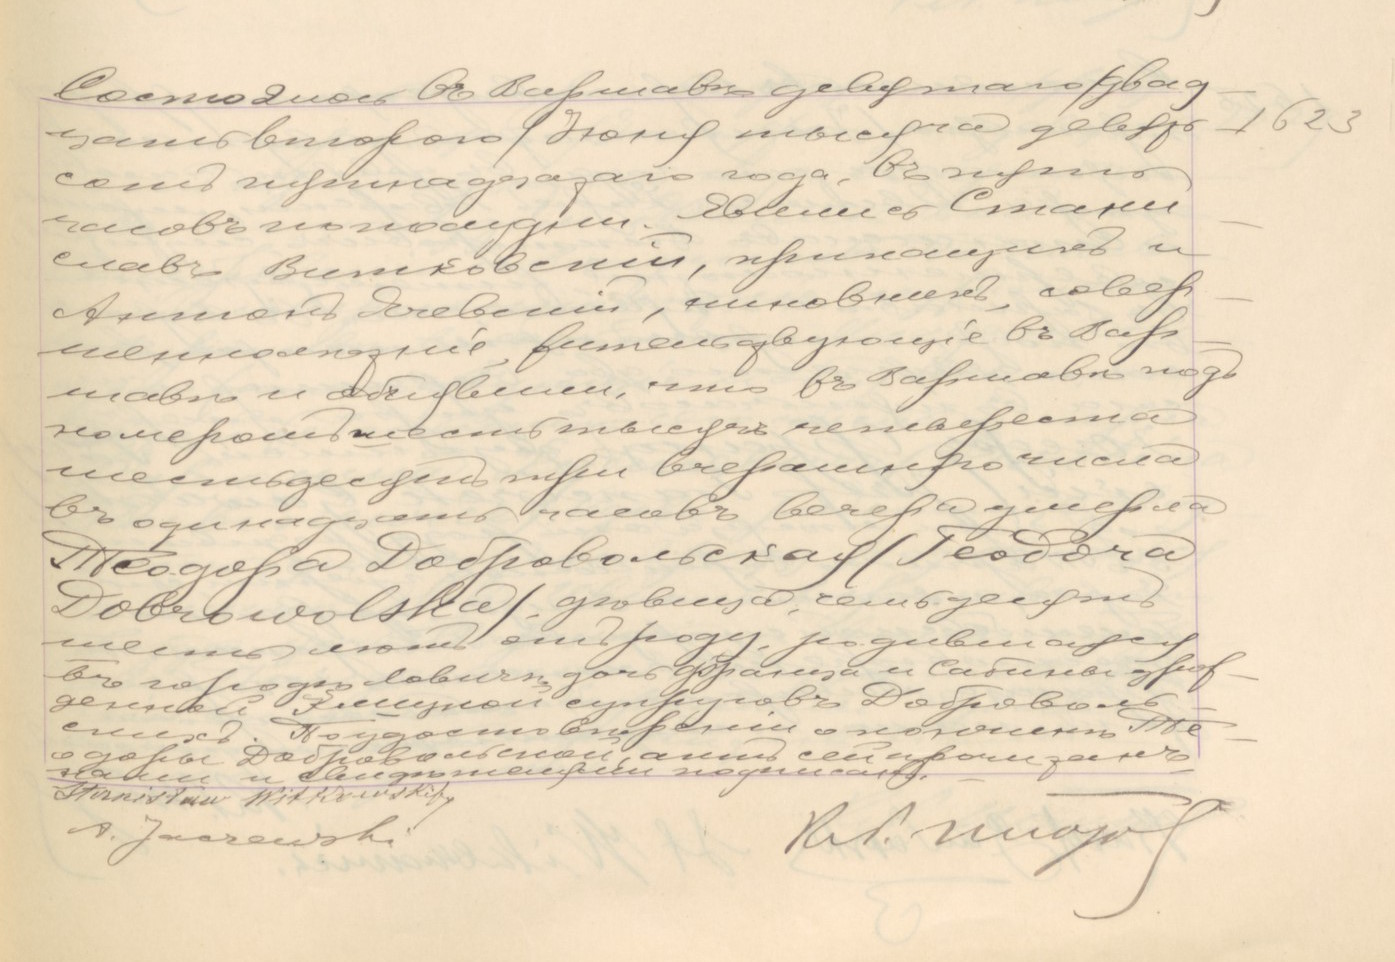 Состоялось въ Варшавѣ девятаго /двад
цать второго/ Іюня тысяча девять
сотъ тринадцатаго года, въ пять
часовъ пополудни. Явились Стани
славъ Витковскій, приказчикъ и
Антонъ Ячевскій, чиновникъ, совер
шеннолѣтніе, жительствующіе въ Вар
шавѣ и объявили, что въ Варшавѣ подъ
номеромъ шесть тысячъ четыреста
шестьдесятъ три вчерашняго числа
въ одинадцать часовъ вечера умерла
Теодора Добровольская /Teodora
Dobrowolska/, дѣвица, семьдесятъ
шесть лѣтъ отъ роду, родившаяся
въ городѣ Ловичѣ, дочь Франца и Сабины урож
денной супруговъ Доброволь
скихъ. По удостовѣреніи о кончинѣ Те
одоры Добровольской, актъ сей прочитанъ
нами и свидѣтелями подписанъ.
Stanisław Witkowski
A. Jaczewski
1623